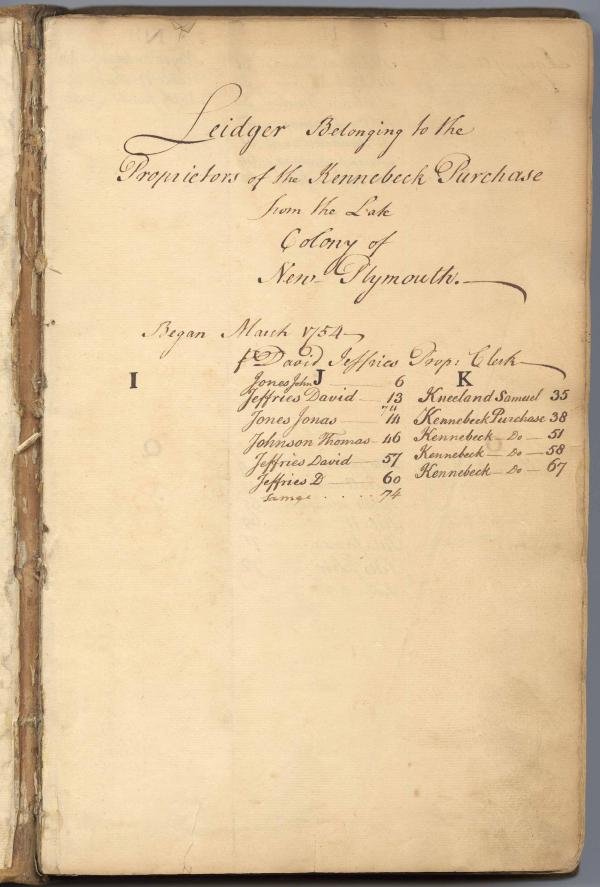 Leidger Belonging to the
Proprietors of the Kennebeck Purchase
from the Late
Colony of
New Plymouth.
Began March 1754
David Jeffries Prop: Clerk
I J K
Jones John 6
Jeffries David 13
Jones Jonas 14
Johnson Thomas 46
Jeffries David 57
Jeffries D 60
74
Kneeland Samuel 35
Kennebeck Purchase 38
Kennebeck Do 51
Kennebeck Do 58
Kennebeck Do 67